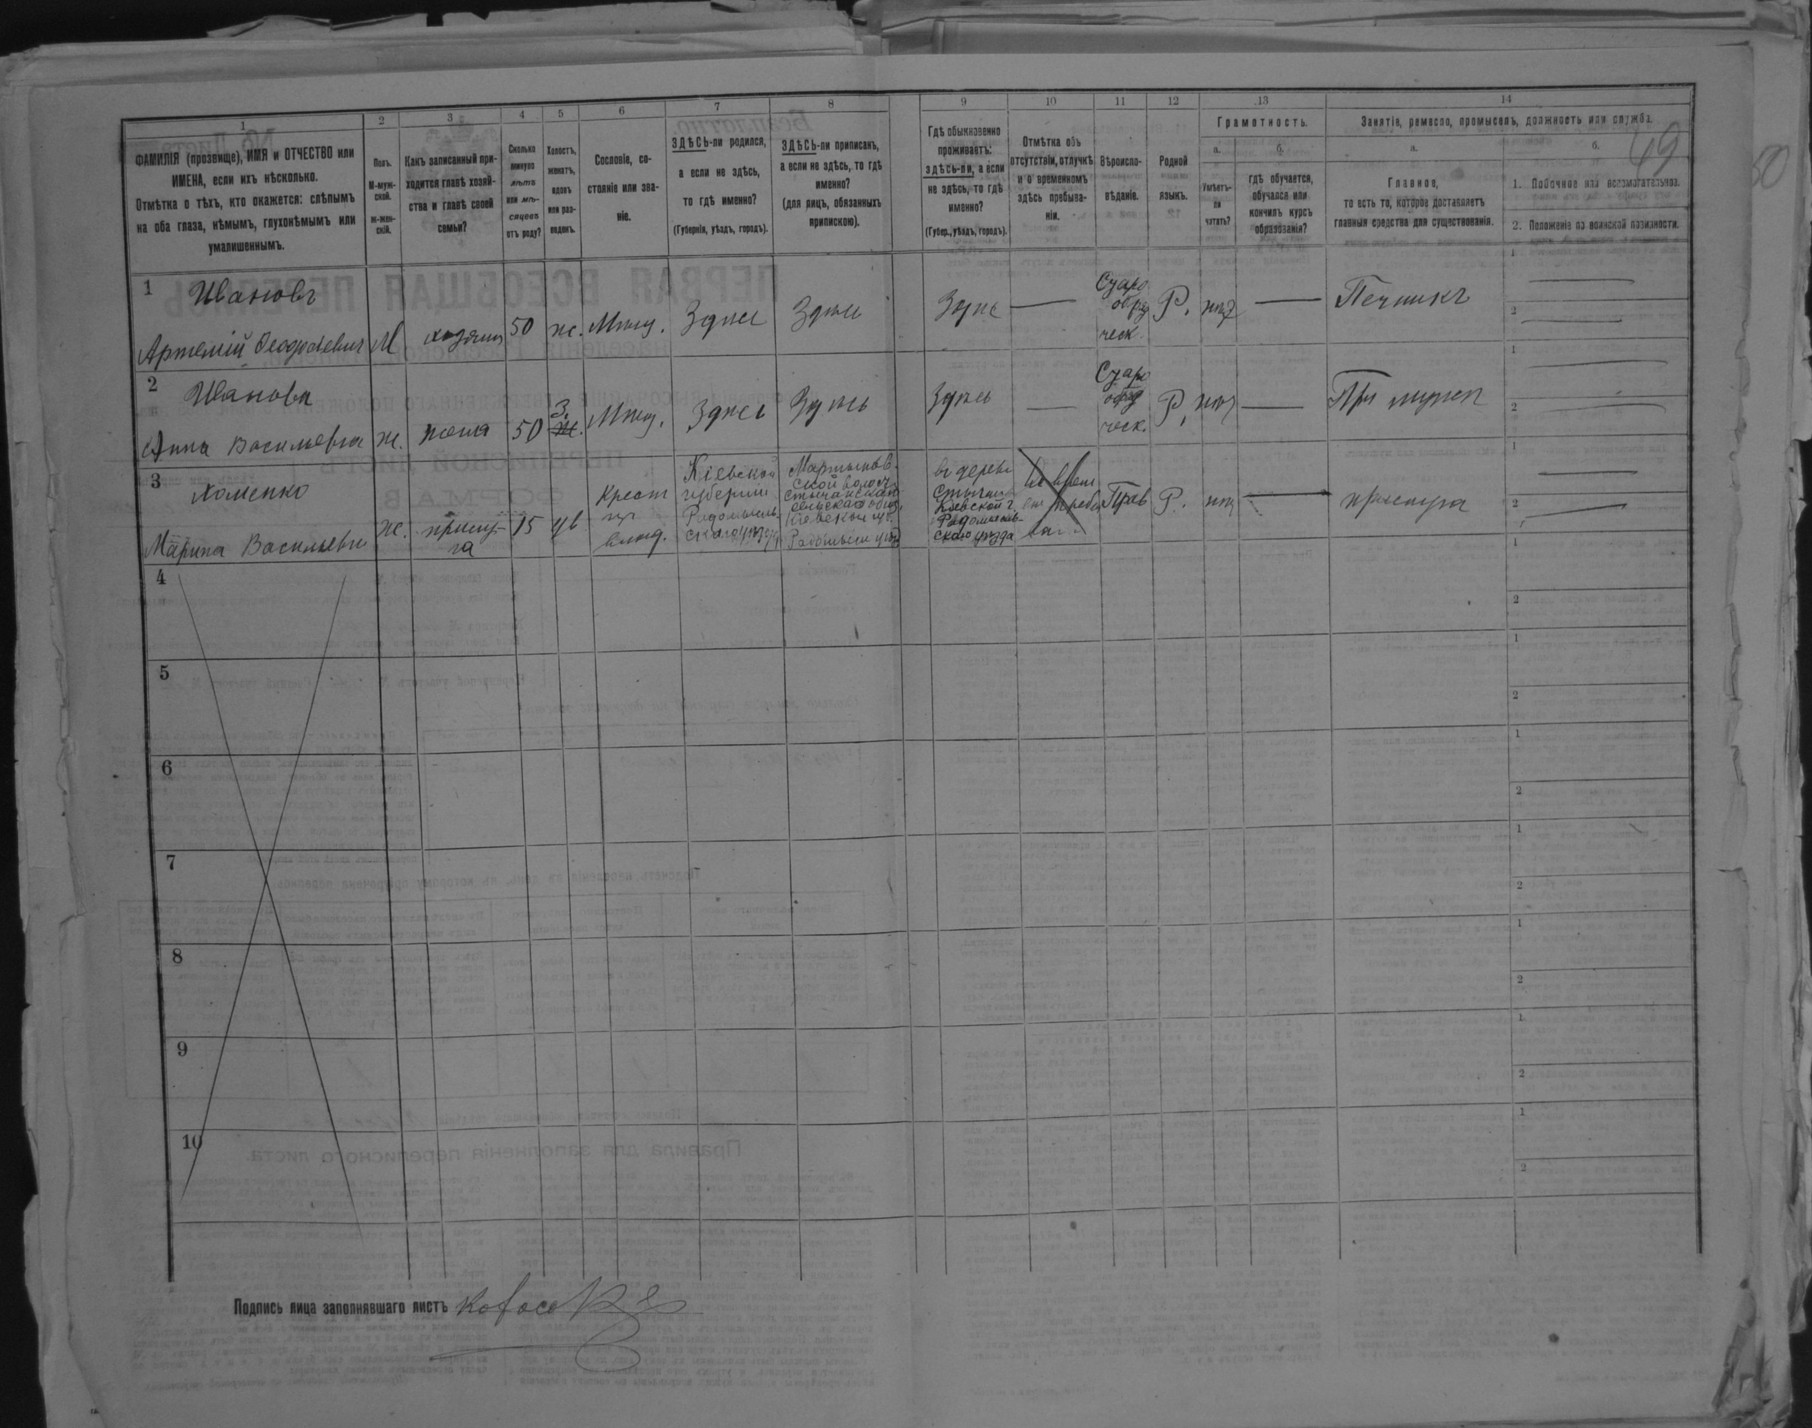 1 2 3 4 5 6 7 8 9 10 11 12 13 14
ФАМИЛІЯ (прозвище), ИМЯ и ОТЧЕСТВО или
ИМЕНА, если ихъ нѣсколько.
Отмѣтка о тѣхъ, кто окажется: слѣпымъ
на оба глаза, нѣмымъ, глухонѣмымъ или
умалишеннымъ.
Полъ.
М-муж-
ской.
Ж-жен-
скій.
Какъ записанный при-
ходится главѣ хозяй-
ства и главѣ своей
семьи?
Сколько
минуло
лѣтъ
или мѣ-
сяцевъ
отъ роду?
Холостъ,
женатъ,
вдовъ
или раз-
веденъ.
Сословіе, со-
стояніе или зва-
ніе.
ЗДѢСЬ-ли родился,
а если не здѣсь,
то гдѣ именно?
(Губернія, уѣздъ, городъ).
ЗДѢСЬ-ли приписанъ,
а если не здѣсь, то гдѣ
именно?
(для лицъ, обязанныхъ
припискою).
Гдѣ обыкновенно
проживаетъ:
здѣсь-ли, а если
не здѣсь, то гдѣ
именно?
(Губер., уѣздъ, городъ).
Отмѣтка объ
отсутствіи, отлучкѣ
и о временномъ
здѣсь пребыва-
ніи.
Вѣроиспо-
вѣданіе.
Родной
языкъ.
Грамотность.
а.
Умѣетъ-
ли
читать?
б.
гдѣ обучается,
обучался или
кончилъ курсъ
образованія?
Занятіе, ремесло, промыселъ, должность или служба.
а.
Главное,
то есть то, которое доставляетъ
главныя средства для существованія.
б.
1. Побочное или вспомогательное.
2. Положеніе по воинской повинности.
49
50
1 Ивановъ
Артемій Феодоревич М хозяинъ 50 ж. Мѣщ. Здѣсь Здѣсь Здѣсь — Старо
обряд
ческ. Р. нѣт — Печникъ
2 Иванова
Анна Васильевна ж. жена 50 З. Мѣщ. Здѣсь Здѣсь Здѣсь — Старо
обряд
ческ. Р. нѣт — При мужѣ
3 Хоменко
Марина Васильевна ж. прислу-
га 15 Крест
Кіевской
губерніи
Радомысль-
скаго уѣзда
Прав Р. нѣт — прислуга
4
5
6
7
8
9
10
Подпись лица заполнявшаго листъ